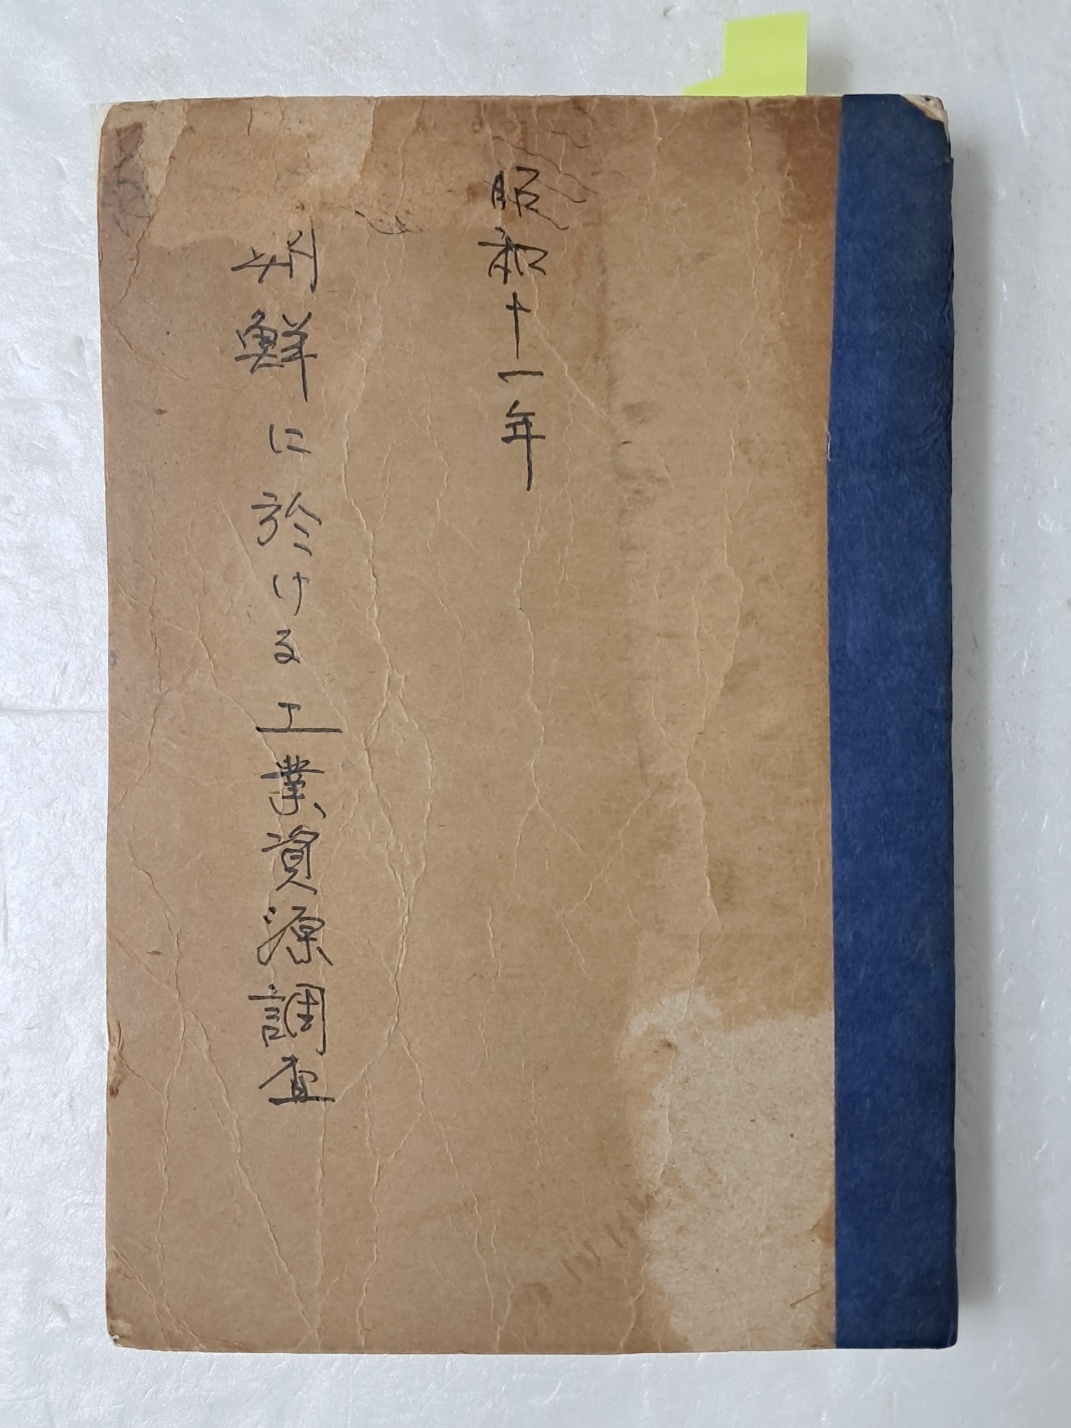 昭和十一年
朝鮮に於ける工業資源調査